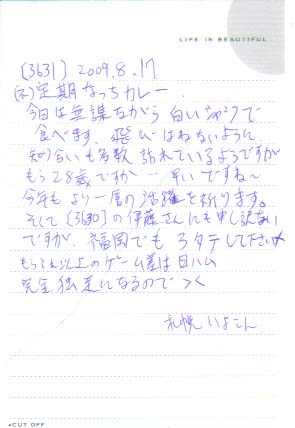 LIFE IS BEAUTIFUL
(3631) 2009.8.17
(ネ)定期なっちカレー.
今日は無謀ながら白いシャツで
食べます. 飛びはねないように.
知り合いも多数 訪れているようですが
もう28歳ですか… 早いですね〜
今年もより一層の活躍を祈ります。
そして(3630)の伊藤さんにも申し訳ない
ですが. 福岡でも3タテして下さい
もうこれ以上のゲーム差は日ハム
完全独走になるので ><
札幌 いよこん
◂CUT OFF